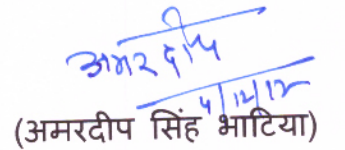 अमरदीप
4/12/12
(अमरदीप सिंह भाटिया)